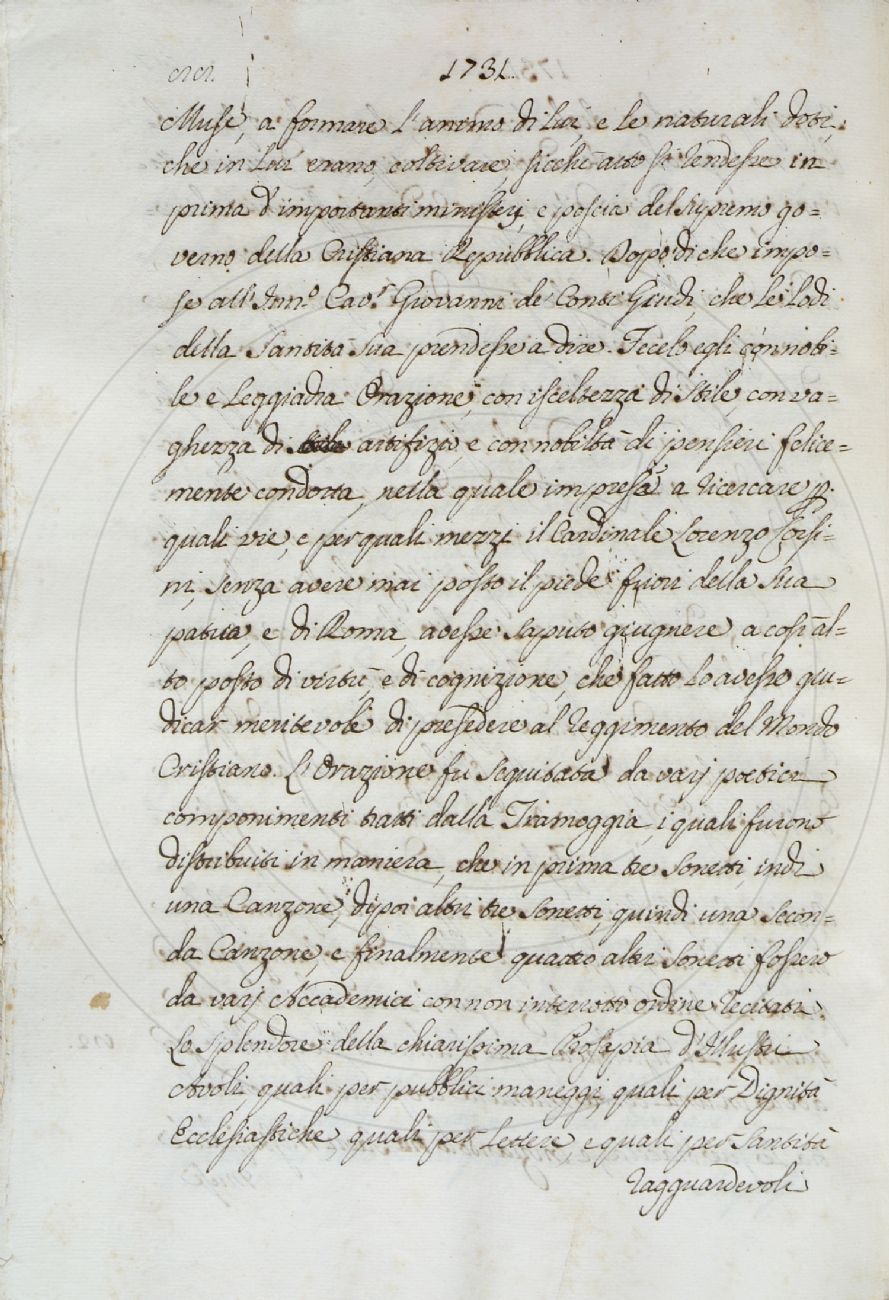 1731.
Muse, a formare l'animo di Lui, e le naturali doti,
che in Lui erano, coltivare, sicchè atto si rendesse in
prima d'importanti ministerj, e poscia del supremo go=
verno della Cristiana Repubblica. Dopo di che impo=
se all' Cav.r Giovanni de' Conti Guidi, che le Lodi
della Santità Sua prendesse a dire. Fecelo egli con nobi=
le e leggiadra Orazione, con isceltezza di Stile, con va=
ghezza di artifizio, e con nobiltà di pensieri felice=
mente condotta, nella quale impresa a ricercare p.
quali vie, e per quali mezzi il Cardinale Lorenzo Corsi=
ni, senza avere mai posto il piede fuori della Sua
patria, e di Roma, avesse saputo giugnere a così al=
to posto di virtù, e di cognizione, che fatto lo avesse giu=
dicar meritevole di presedere al reggimento del Mondo
Cristiano. L'Orazione fu seguitata da varj poetici
componimenti tratti dalla Tramoggia, i quali furono
distribuiti in maniera, che in prima tre Sonetti, indi
una Canzone, dipoi altri tre Sonetti, quindi una Secon=
da Canzone, e finalmente quattro altri Sonetti fossero
da varj Accademici con non interrotto ordine recitati.
Lo splendore della chiarissima Prosapia d'Illustri
Avoli quali per pubblici maneggi, quali per Dignità
Ecclesiastiche, quali per Lettere, e quali per Santità
ragguardevoli